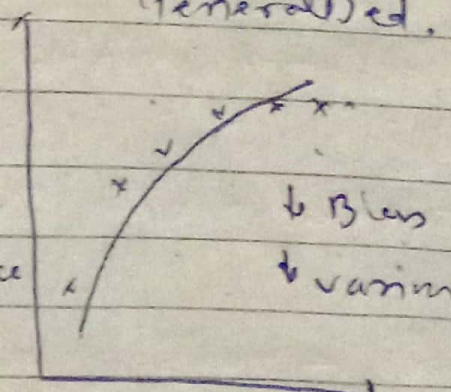 Generalised.
↓ Bias
↓ varian